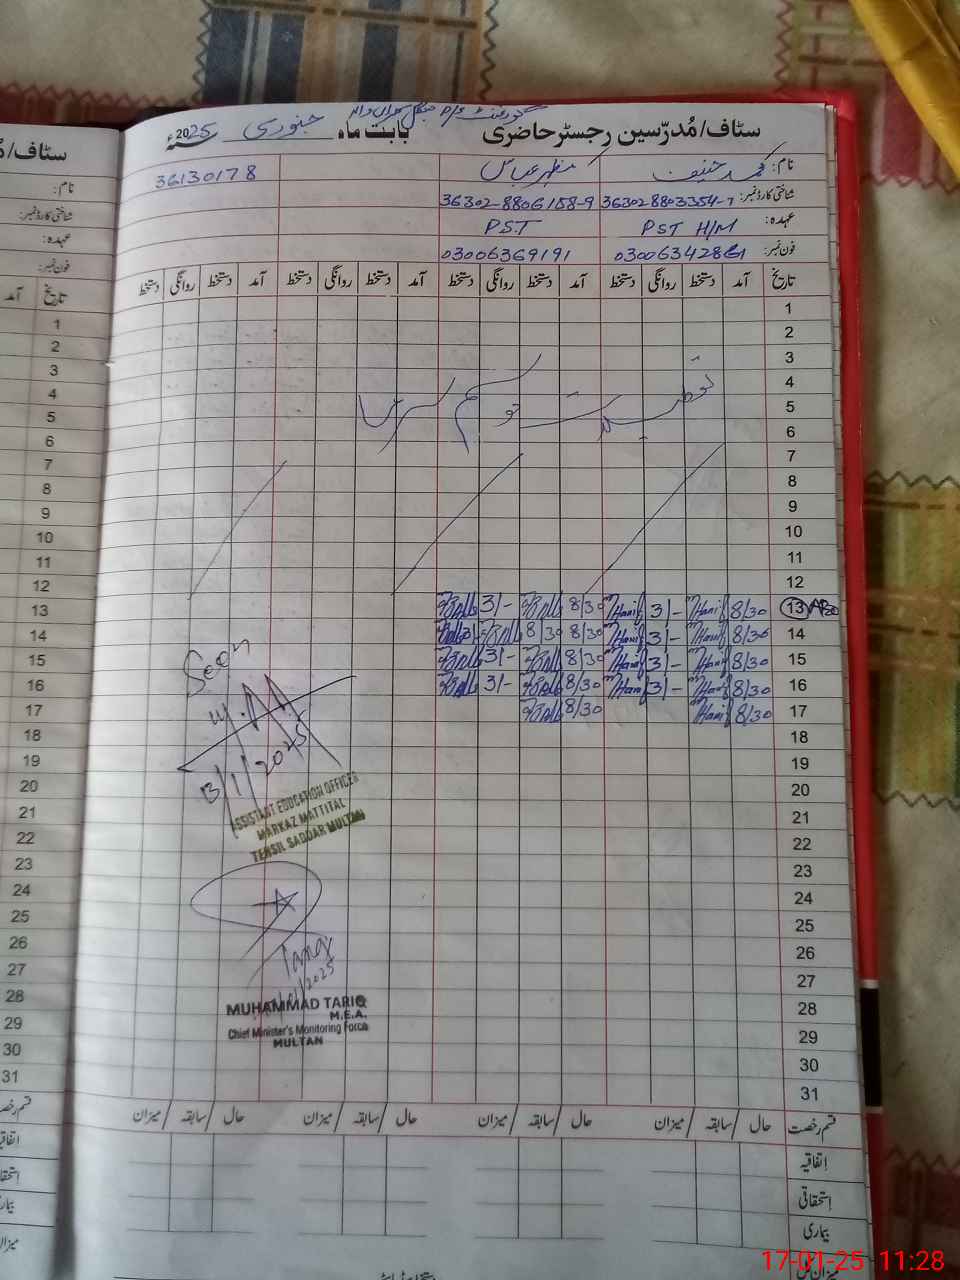 گورنمنٹ
سٹاف/مُدرّسین رجسٹر حاضری بابت ماہ جنوری سنہ 2025ء
نام: محمد حنیف مظہر عباس 36130178
شناختی کارڈ نمبر: 36302-8806158-9
عہدہ: PST H/M PST
فون نمبر: 03006369191
تاریخ آمد دستخط روانگی دستخط آمد دستخط روانگی دستخط آمد دستخط روانگی دستخط آمد دستخط روانگی دستخط
1
2
3
4
5
6
تعطیلات موسم سرما
7
8
9
10
11
12
13 8/30 Hanif 3/- Hanif 8/30 3/-
14 8/30 Hanif 3/- Hanif 8/30 8/30
15 8/30 Hanif 3/- Hanif 8/30 3/-
16 8/30 Hanif 3/- Hanif 8/30 3/-
17 8/30 Hanif 8/30
18
19
20
21
22
23
24
25
26
27
28
29
30
31
Seen
13/1/2025
ASSISTANT EDUCATION OFFICER
MARKAZ MATTITAL
TEHSIL SADDAR MULTAN
Tariq
MUHAMMAD TARIQ
M.E.A.
Chief Minister's Monitoring Force
MULTAN
قسم رخصت حال / سابقہ / میزان حال / سابقہ / میزان حال / سابقہ / میزان حال / سابقہ / میزان
اتفاقیہ
استحقاقی
بیماری
سٹاف/مُ
نام:
شناختی کارڈ نمبر:
عہدہ:
فون نمبر:
تاریخ آمد
1
2
3
4
5
6
7
8
9
10
11
12
13
14
15
16
17
18
19
20
21
22
23
24
25
26
27
28
29
30
31
17-01-25 11:28